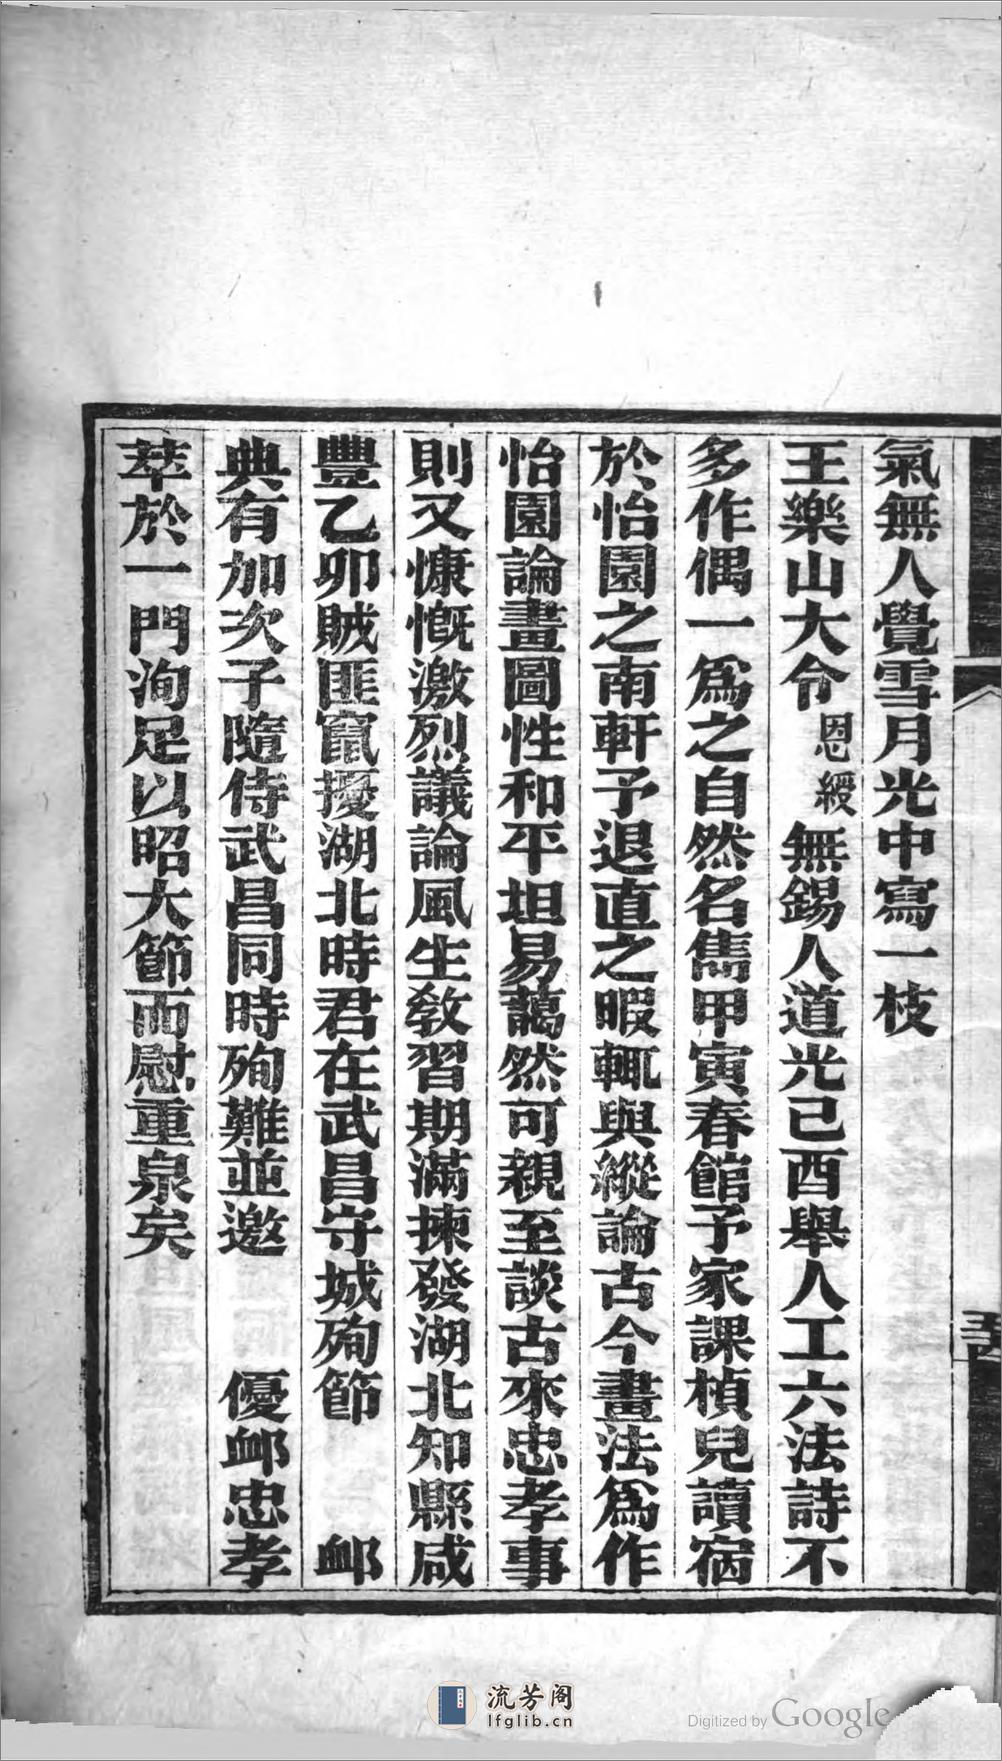 氣無人覺雪月光中寫一枝
王樂山大令恩綬無錫人道光己酉舉人工六法詩不
多作偶一為之自然名雋甲寅春館予家課楨兒讀宿
於怡園之南軒予退直之暇輒與縱論古今畫法為作
怡園論畫圖性和平坦易藹然可親至談古來忠孝事
則又慷慨激烈議論風生教習期滿揀發湖北知縣咸
豐乙卯賊匪竄擾湖北時君在武昌守城殉節 卹
典有加次子隨侍武昌同時殉難並邀 優卹忠孝
萃於一門洵足以昭大節而慰重泉矣
流芳阁
lfglib.cn
Digitized by Google